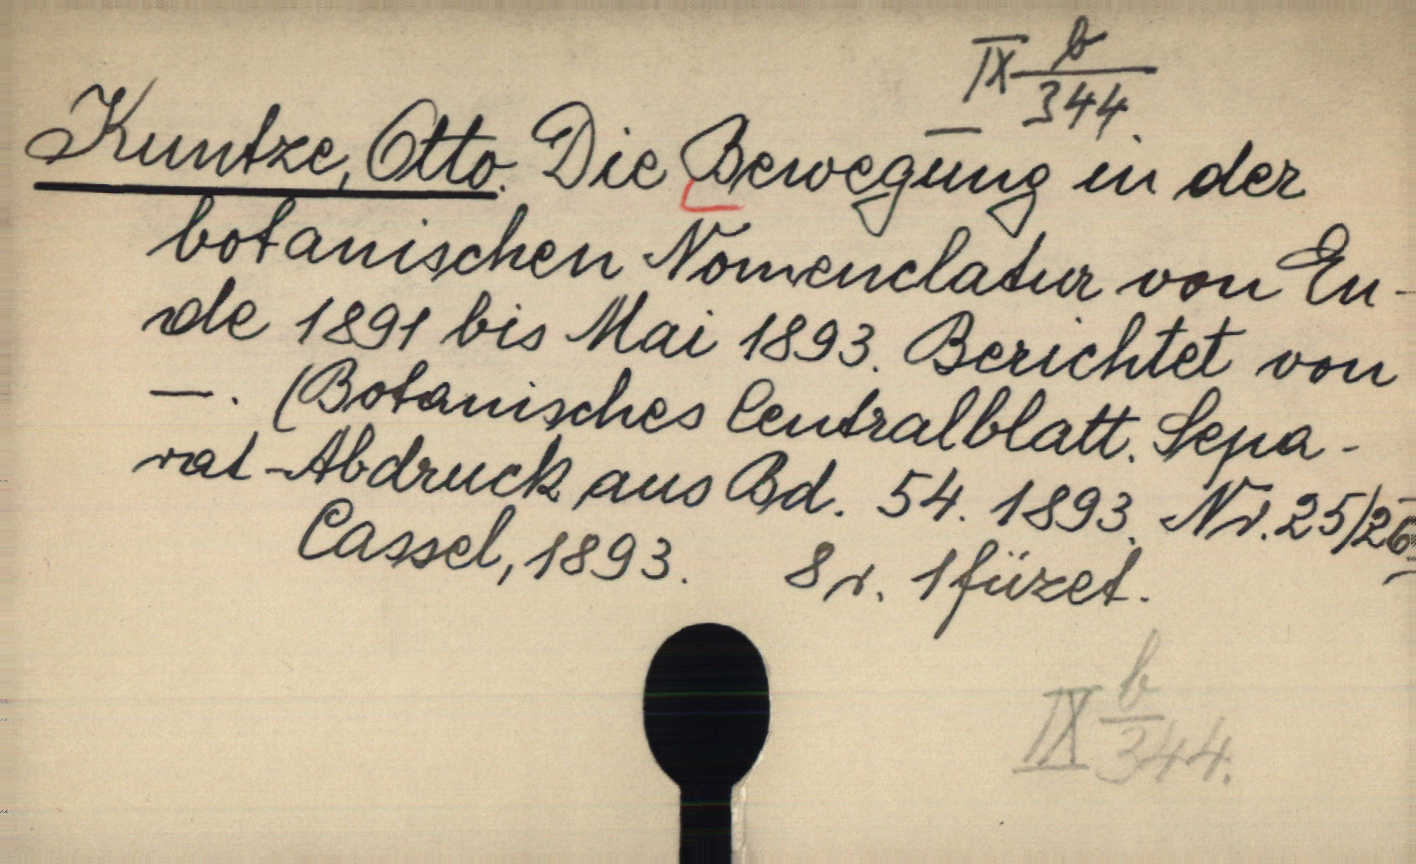 IX b/344.
Kuntze, Otto. Die Bewegung in der
botanischen Nomenclatur von En-
de 1891 bis Mai 1893. Berichtet von
—. (Botanisches Centralblatt. Sepa-
rat-Abdruck aus Bd. 54. 1893. Nr. 25/26
Cassel, 1893. 8r. 1 füzet.
IX b/344.